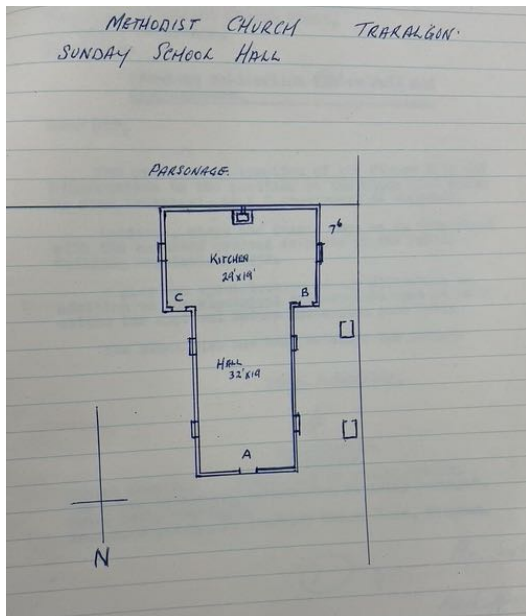 METHODIST CHURCH TRARALGON.
SUNDAY SCHOOL HALL
PARSONAGE.
7⁶
KITCHEN
29'x19'
C
B
HALL
32'x19
A
N